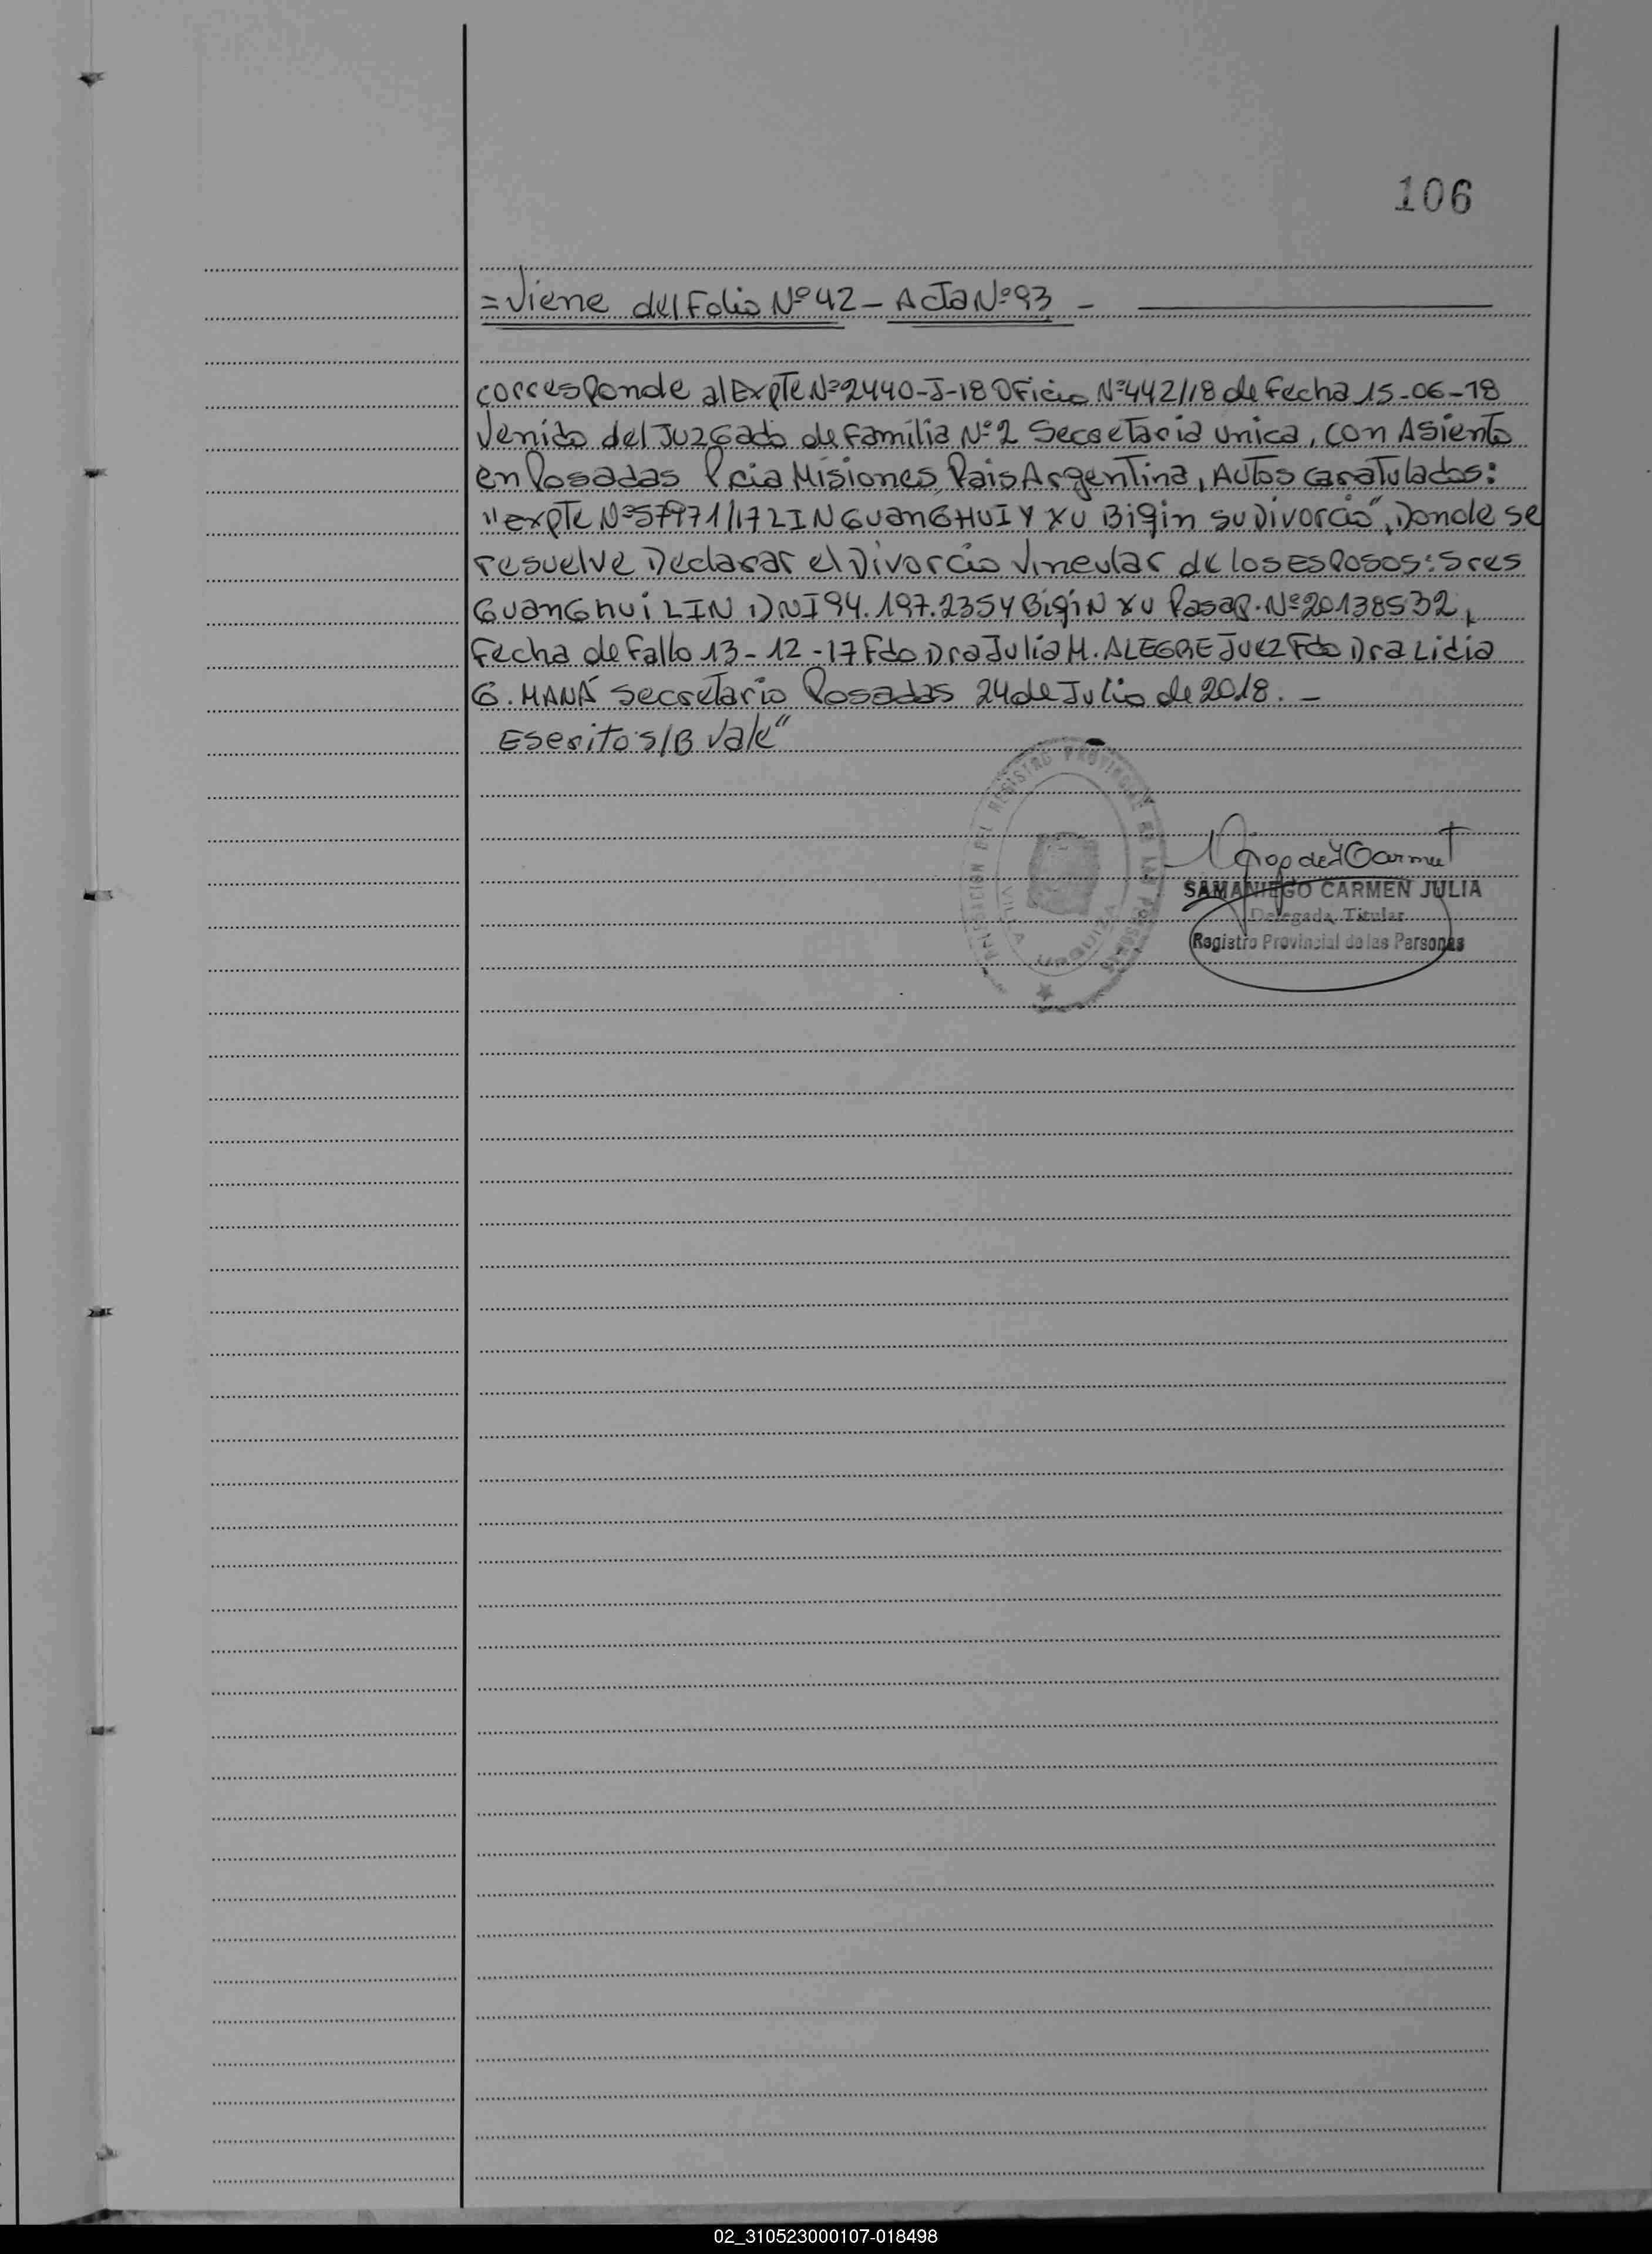 106
=Viene del Folio Nº 42 - Acta Nº 93 -
corresponde al Expte Nº 2440-J-18 Oficio Nº 442/18 de Fecha 15-06-18
Venido del Juzgado de Familia Nº 2 Secretaria unica, con Asiento
en Posadas Pcia Misiones, Pais Argentina, Autos caratulados:
"expte Nº 57971/17 LIN GUANGHUI Y XU Biqin su Divorcio", Donde se
resuelve Declarar el Divorcio Vincular de los Esposos: Sres
GuanGhui LIN DNI 94.197.235 Y BiqiN XU Pasap. Nº 20138532,
Fecha de Fallo 13-12-17 Fdo Dra Julia H. ALEGRE Juez Fdo Dra Lidia
G. MANÁ Secretario Posadas 24 de Julio de 2018. -
Escrito s/B Vale"
DEL REGISTRO PROVINCIAL DE LAS PERSONAS
VILLA URQUIZA
SAMANIEGO CARMEN JULIA
Delegada Titular
Registro Provincial de las Personas
02_310523000107-018498